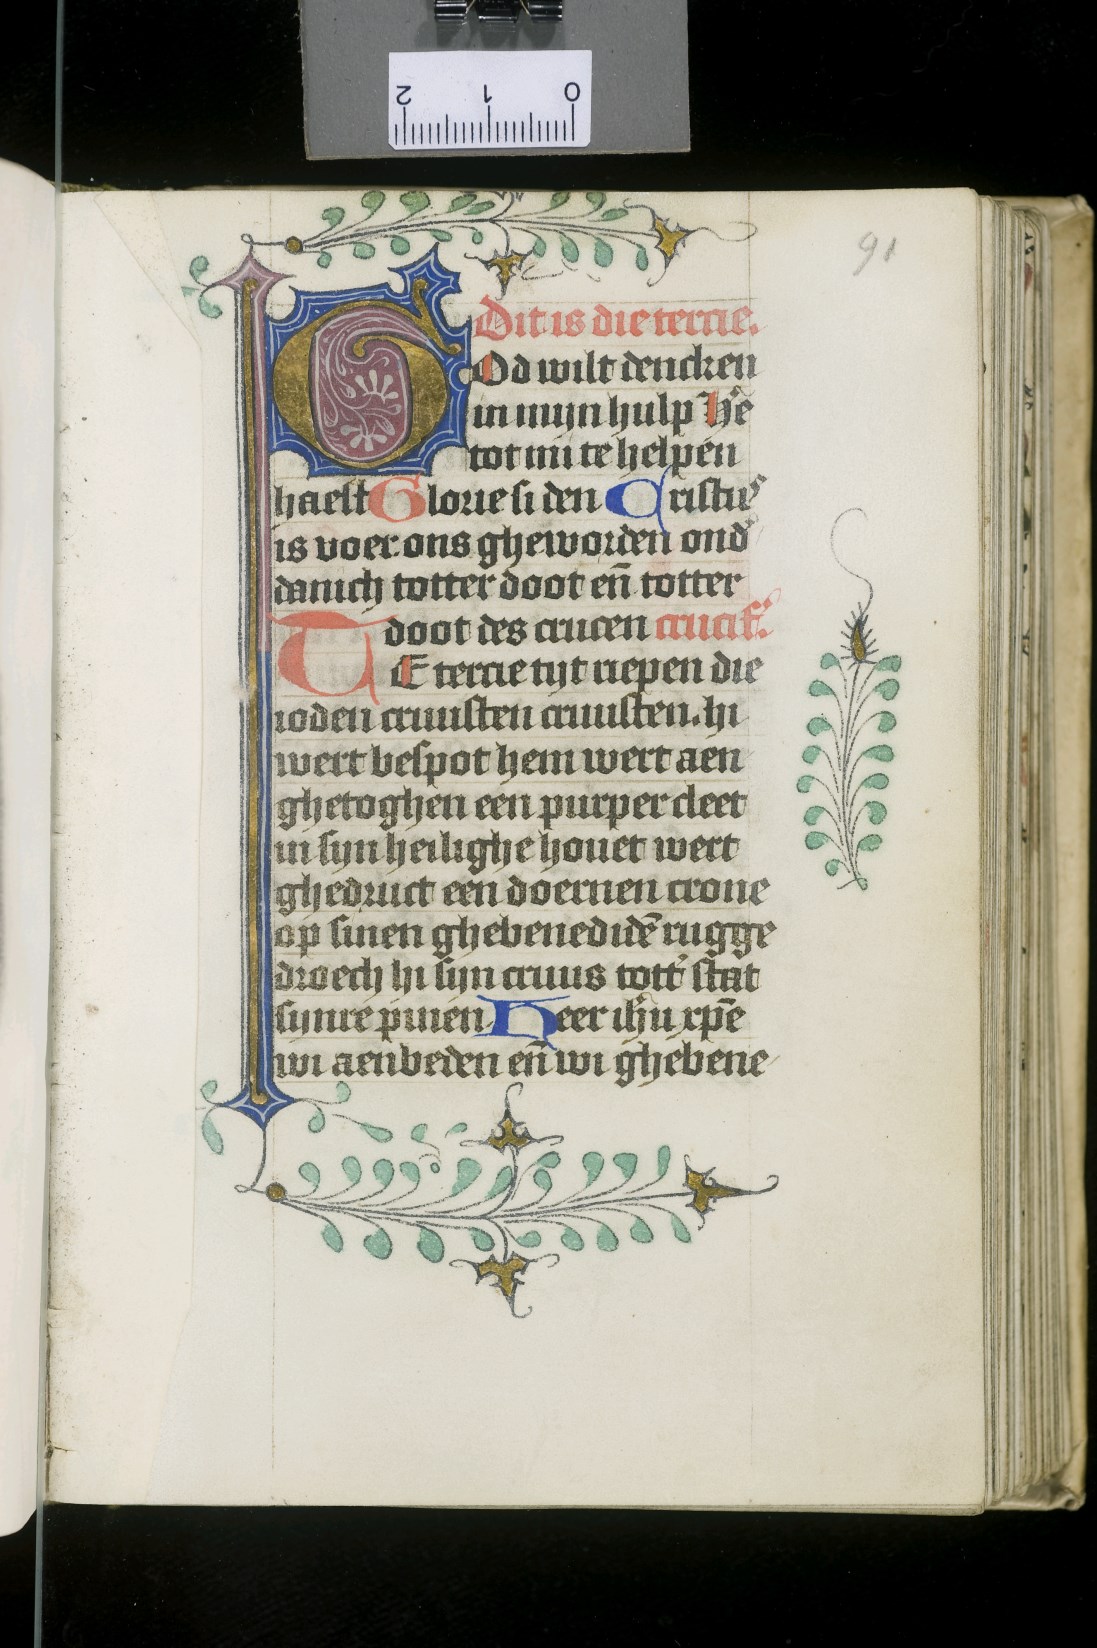 2 1 0
91
Dit is die tercie.
GOd wilt dencken
in mijn hulp He͛
tot mi te helpen
haest Glorie si den Cristus
is voer ons gheworden ond͛
danich totter doot en̄ totter
doot des crucen crucif.
TE tercie tijt riepen die
ioden cruusten cruusten. hi
wert bespot hem wert aen
ghetoghen een purper cleet
in sijn heilighe houet wert
ghedruct een doernen crone
op sinen ghebenedidē rugge
droech hi sijn cruus tott͛ stat
sijnre pinen Heer ih̄u xp̄e
wi aenbeden en̄ wi ghebene